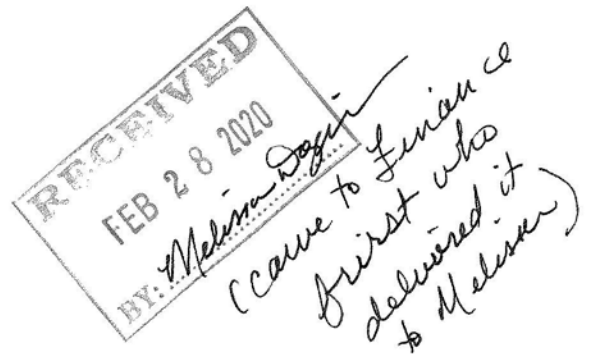 RECEIVED
FEB 28 2020
BY: Melissa
(came to Finance
first who
delivered it
to Melissa)